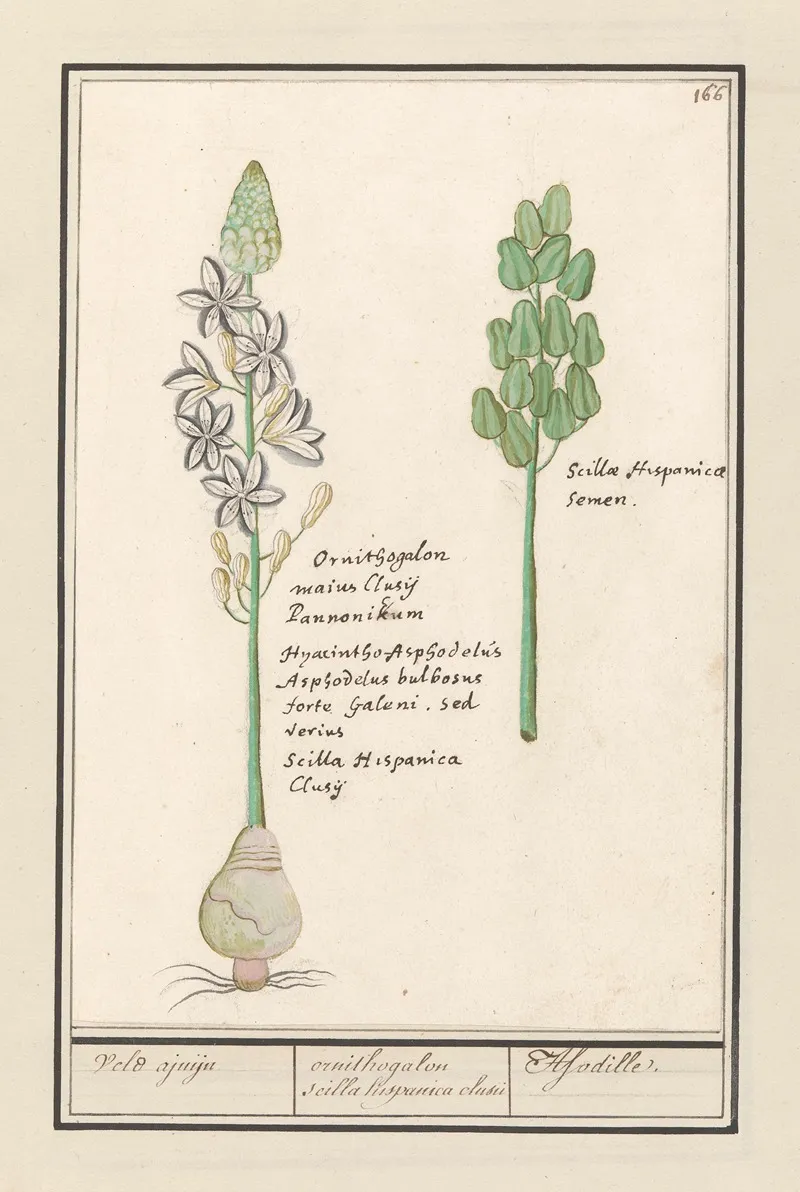 166
Ornithogalon
maius Clusij
Pannonikum
Hyacintho-Asphodelus
Asphodelus bulbosus
forte Galeni. sed
verius
Scilla Hispanica
Clusij
Scillæ Hispanicæ
Semen.
Veld ajuijn
ornithogalon
scilla hispanica clusii
Afodille.